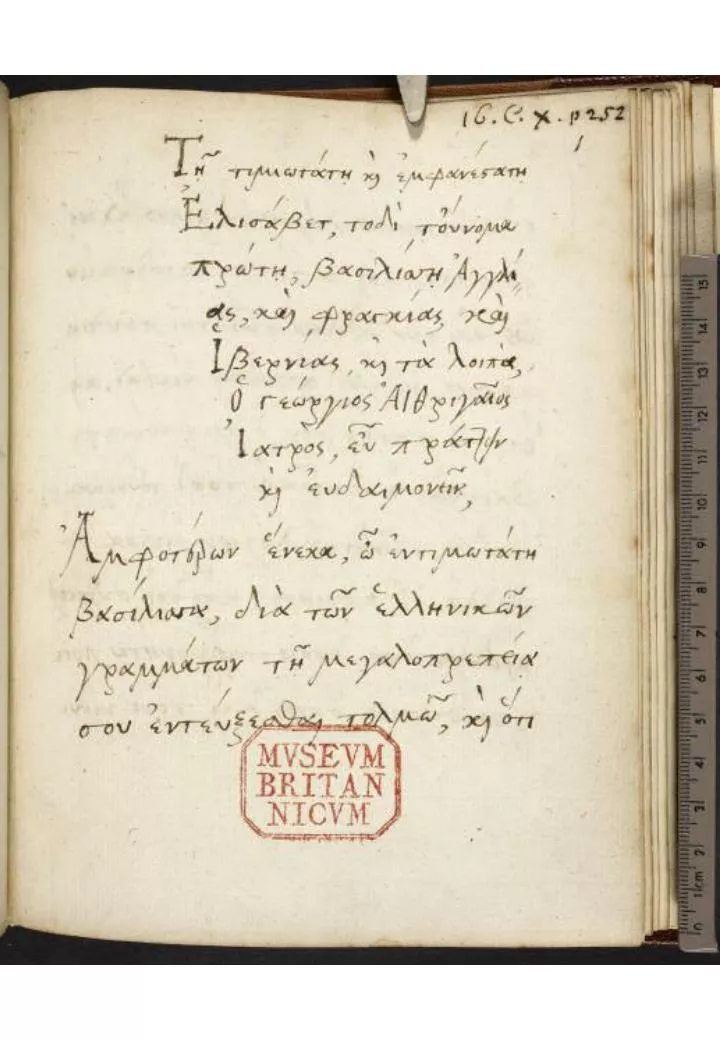 16. C. X. p 252
1
Τῆ τιμιωτάτη κὶ ἐμφανεςάτη
Ἐλισάβετ, τοδὶ τοὔνομα
πρώτη, βασιλίσση Ἀγγλί-
ας, καὶ φρασκιάς, καὶ
Ἱβερνίας, κὶ τὰ λοιπὰ,
ὁ Γεώργιος Αἰθριγαῖος
Ἰατρὸς, εὖ πράτ
κὶ ἐυδαιμονεῖν,
Ἀμφοτέρων ἕνεκα, ὦ ἐντιμωτάτη
βασίλισσα, διὰ τῶν ἑλληνικῶν
γραμμάτων τῆ μεγαλοπρεπεία
σου ἐντεύξεσθαι τολμῶ, κὶ ὅτι
MVSEVM
BRITAN
NICVM
15
14
13
12
11
10
9
8
7
6
5
4
3
2
1cm
0